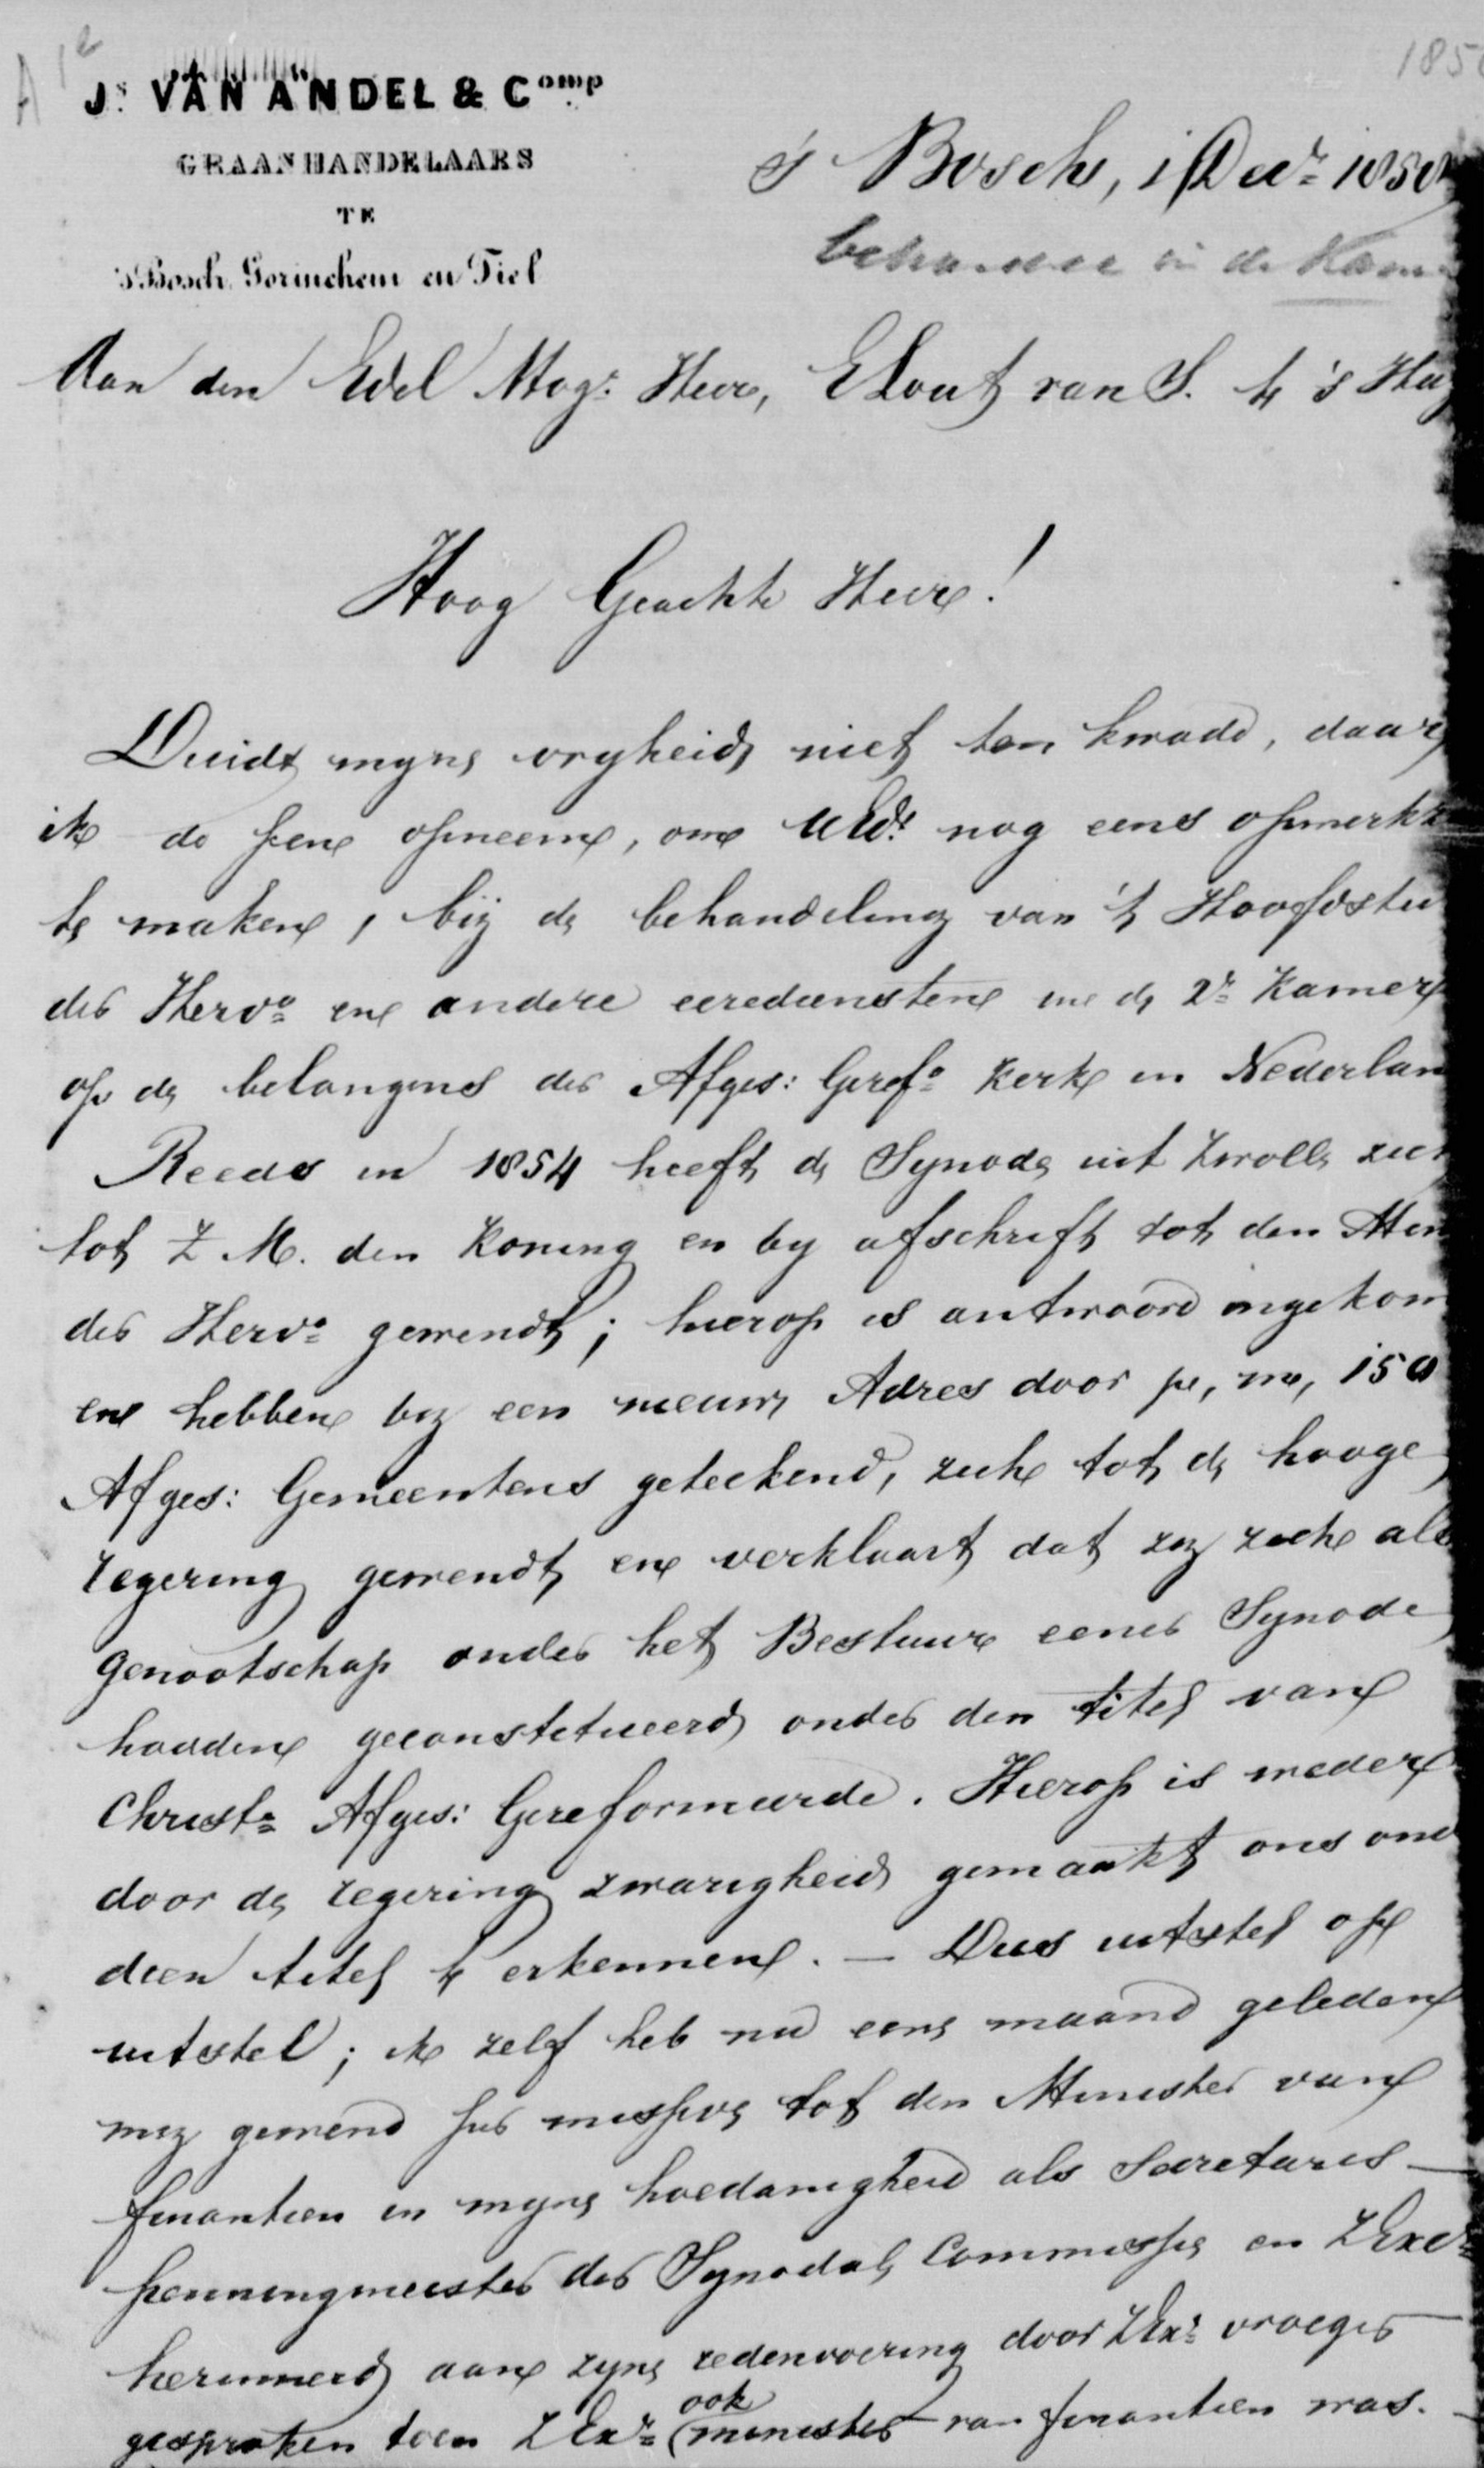 A 1e
185
Js. VAN ANDEL & Comp
GRAANHANDELAARS
TE
's Bosch, Gorinchem en Tiel
's Bosch, 1 Decr 1858
behandee in de Kam
Aan den Edel Mogr Heer, Elout van S. te 's Hag
Hoog Geachte Heer!
Duidt myne vryheid niet ten kwade, daar
ik de pen opneem, om UEds nog eens opmerkz
te maken, bij de behandeling van 't Hoofdstu
der Hervo en andere eerediensten in de 2e Kamer
op de belangens der Afges: Gerefo Kerk in Nederlan
Reeds in 1854 heeft de Synode uit Zwolle zich
tot Z. M. den Koning en by afschrift tot den Min
der Hervo gewendt; hierop is antwoord ingekom
en hebben by een nieuw Adres door p, m, 150
Afges: Gemeentens geteekend, zich tot de hooge
regering gewendt en verklaart dat zy zich als
genootschap onder het Bestuur eener Synode
hadden geconstitueerd onder den titel van
Christe Afges: Gereformeerde. Hierop is weder
door de regering zwarigheid gemaakt ons ond
dien titel te erkennen. — Dus uitstel op
uitstel; ik zelf heb nu eene maand geleden
my gewend per missive tot den Minister van
finantien in myne hoedanigheid als Secretaris
penningmeester der Synodale Commissie en ZExc
herinnerd aan zyne redenvoering door ZExc vroeger
gesproken toen ZExc ook minister van finantien was.